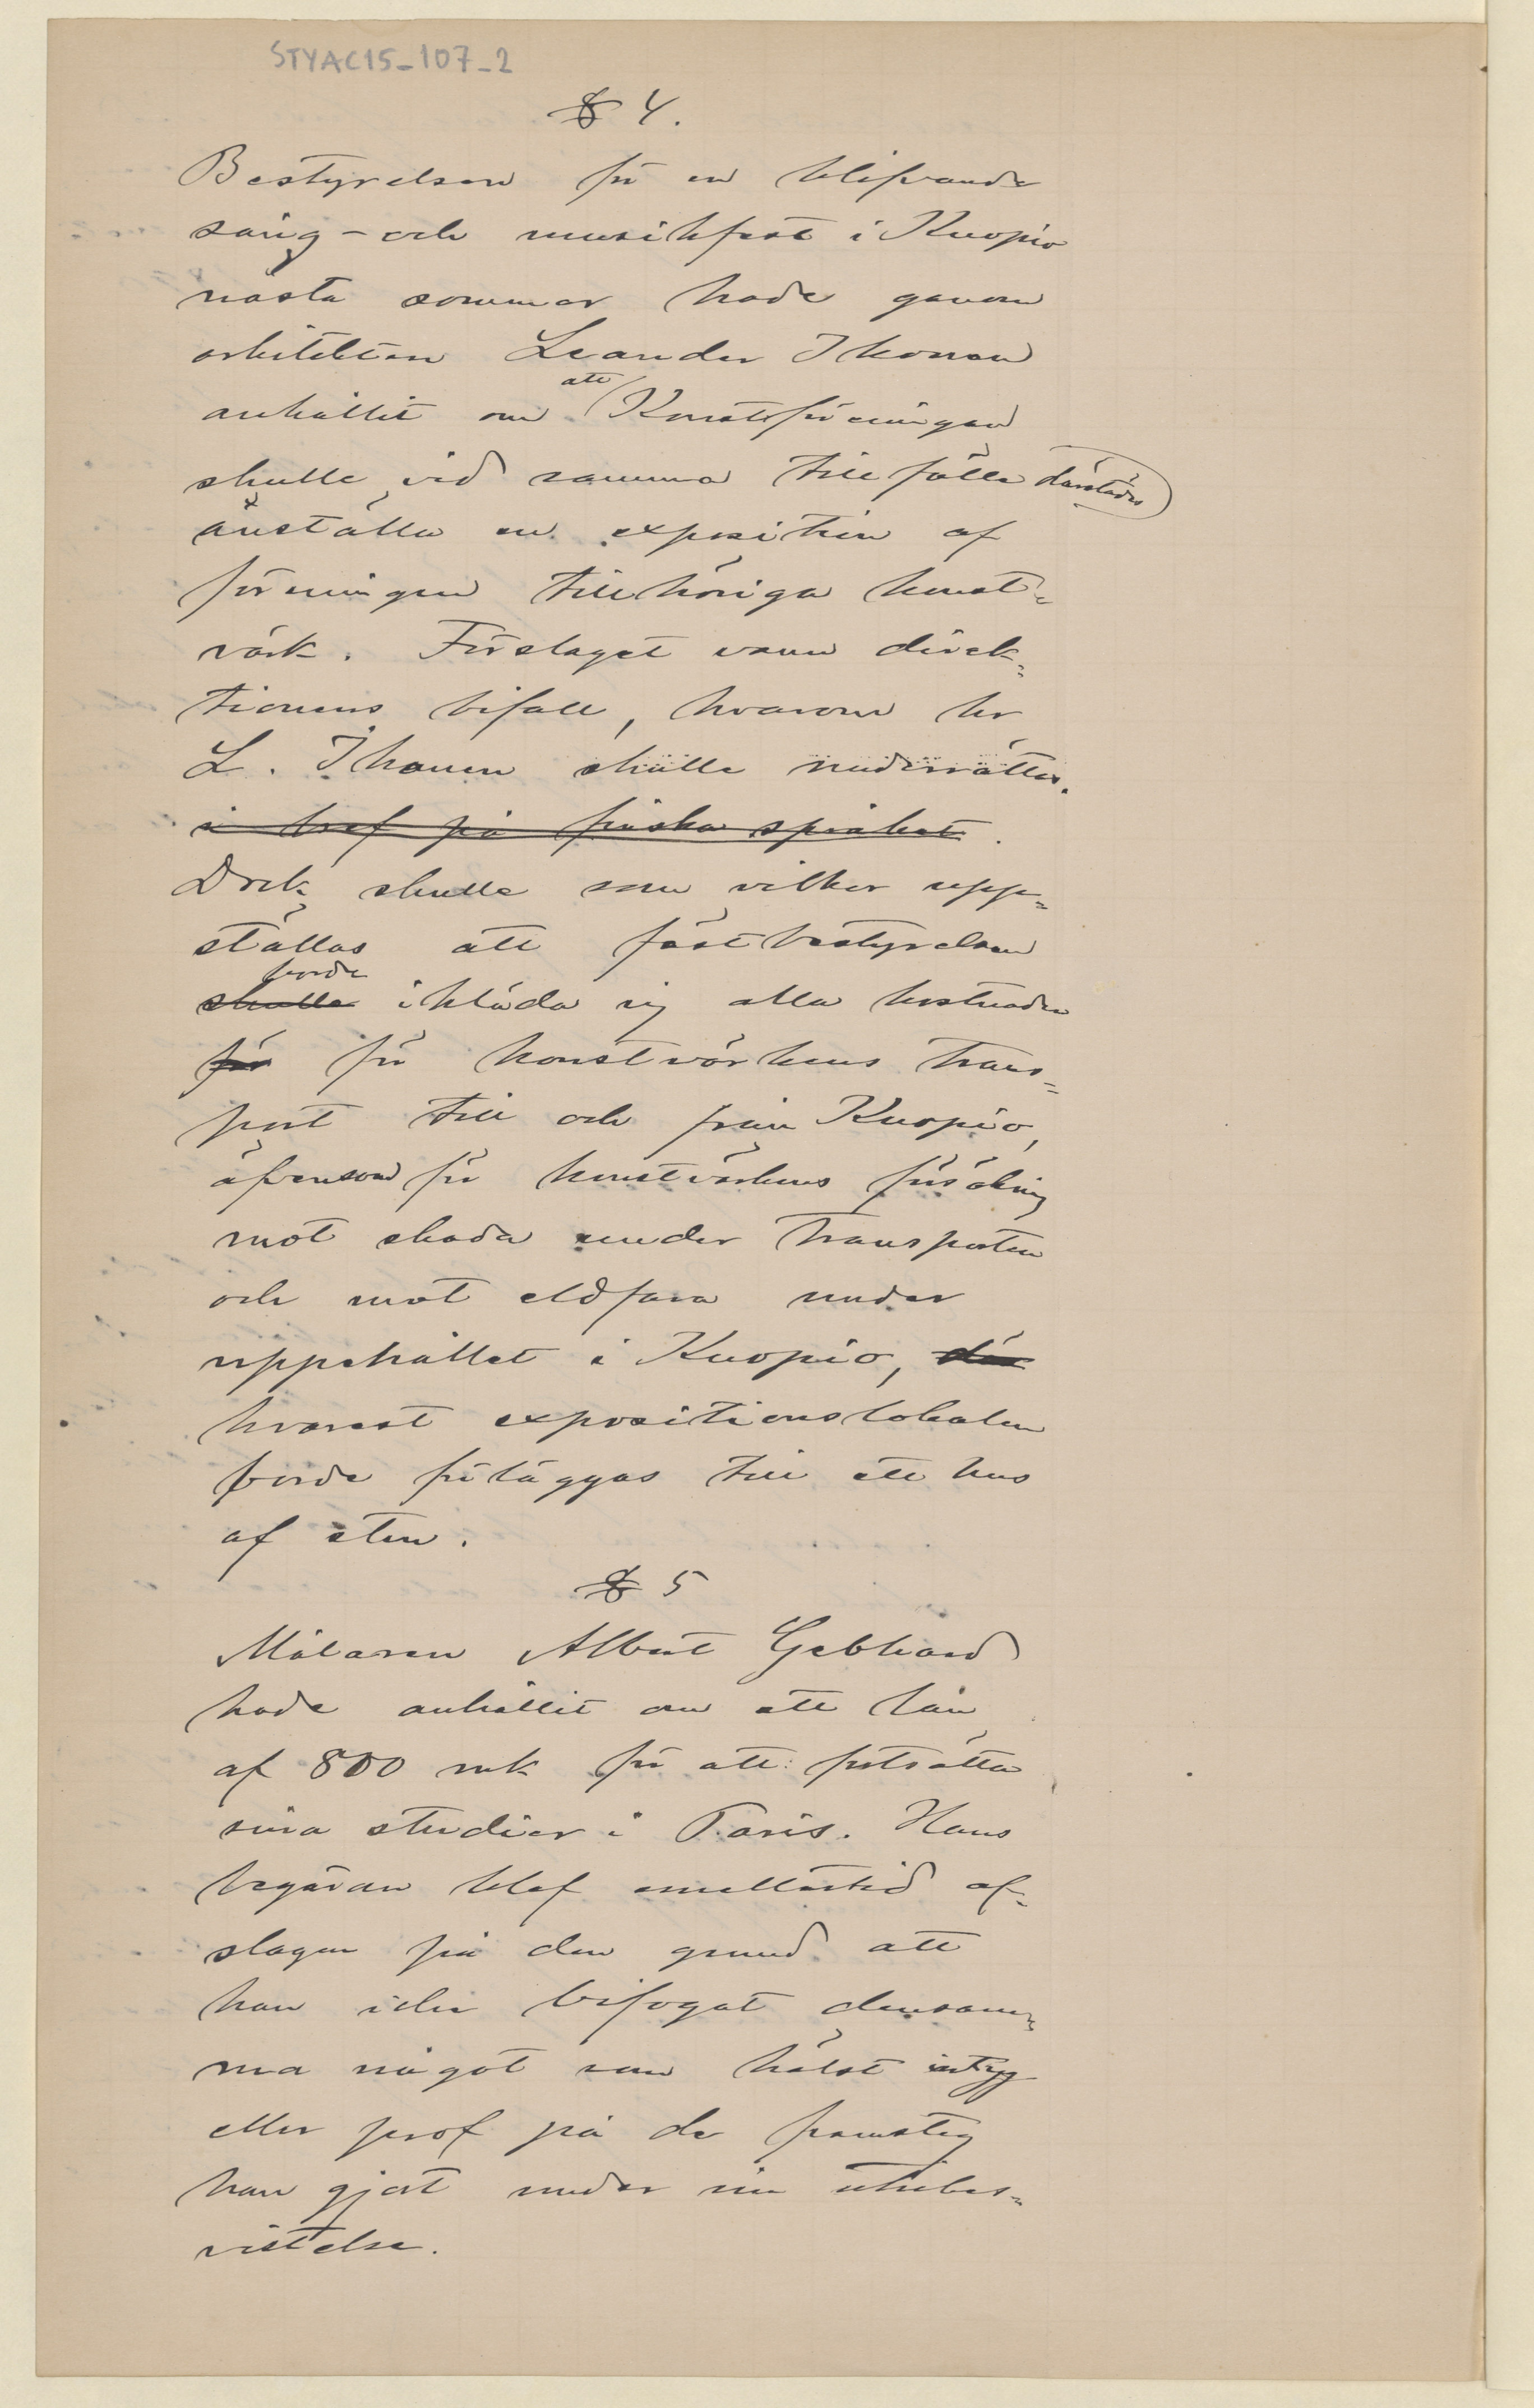 STYAC15-107-2
§ 4.
Bestyrelsen för en blifvande
sång- och musikfest i Kuopio
nästa sommar hade genom
arkitekten Leander Ikonen
anhållit om att Konstföreningen
skulle vid samma tillfälle därstädes
anställa en exposition af
föreningen tillhöriga konst-
värk. Förslaget vann direk-
tionens bifall, hvarom hr
L. Ikonen skulle underrättas.
i bref på finska språket.
Dock skulle som vilkor upp-
ställas att fästbestyrelsen
skulle borde ikläda sig alla kostnader
för för konstvärkens trans-
port till och från Kuopio,
äfvensom för konstvärkens försäkring
mot skada under transporten
och mot eldfara under
uppehållet i Kuopio, där
hvarest expositionslokalen
borde förläggas till ett hus
af sten.
§ 5
Målaren Albert Gebhard
hade anhållit om ett lån
af 800 mk för att fortsätta
sina studier i Paris. Hans
begäran blef emellertid af-
slagen på den grund att
han icke bifogat densam-
ma något som hälst intyg
eller prof på de framsteg
han gjort under sin utrikes-
vistelse.